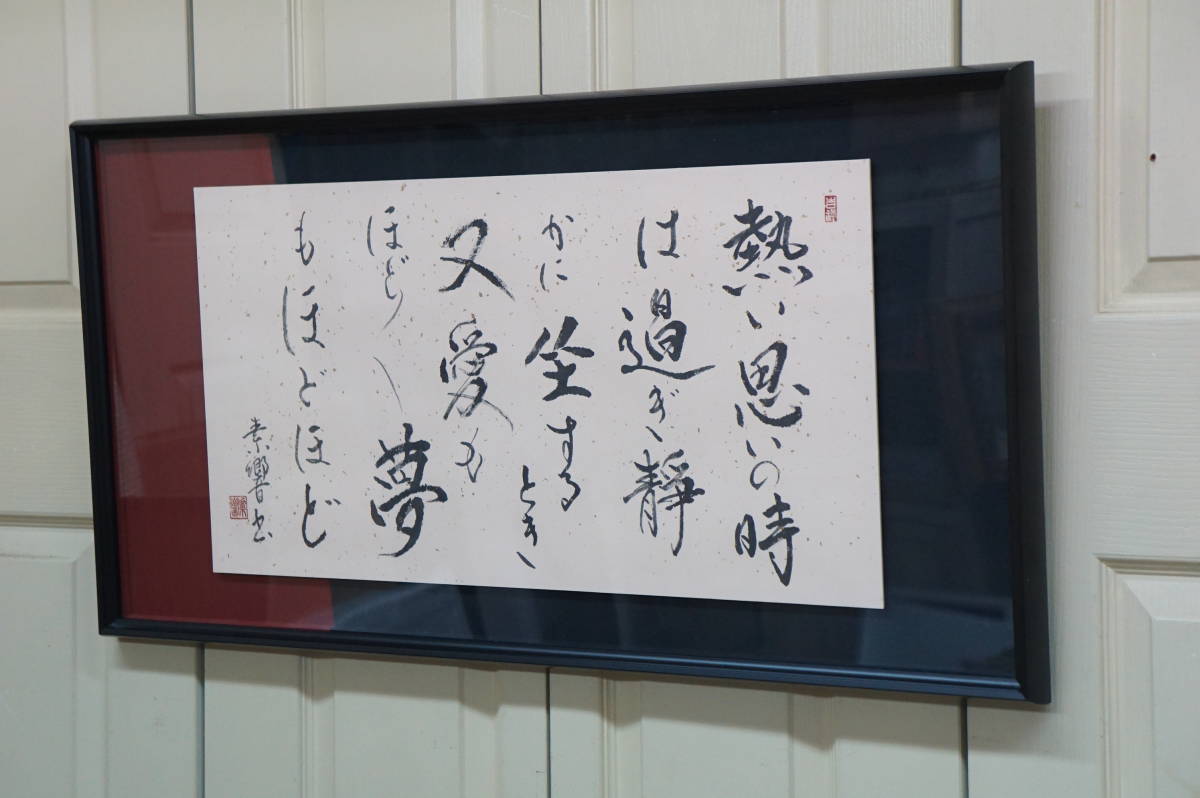 熱い思いの時
は過ぎ静
かに坐するとき
又愛も
ほどり〱夢
もほどほど
素響書